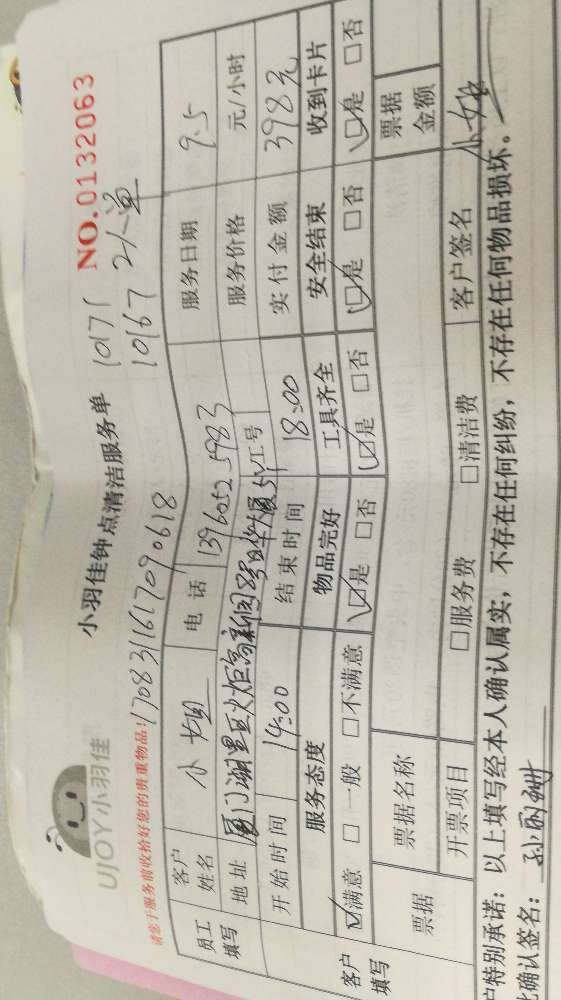 UJOY小羽佳
小羽佳钟点清洁服务单
NO.0132063
请您于服务前收拾好您的贵重物品!
170831617090618
10171
10167 2人单
员工填写
客户姓名 小姐 电话 13960525983 服务日期 9.5
地址 厦门湖里区火炬高新园 工号 服务价格 元/小时
开始时间 14:00 结束时间 18:00 实付金额 398元
客户填写
服务态度 物品完好 工具齐全 安全结束 收到卡片
☑满意 □一般 □不满意 ☑是 □否 ☑是 □否 ☑是 □否 ☑是 □否
票据 票据名称 票据金额
开票项目 □服务费 □清洁费 客户签名 小姐
户特别承诺：以上填写经本人确认属实，不存在任何纠纷，不存在任何物品损坏。
确认签名：